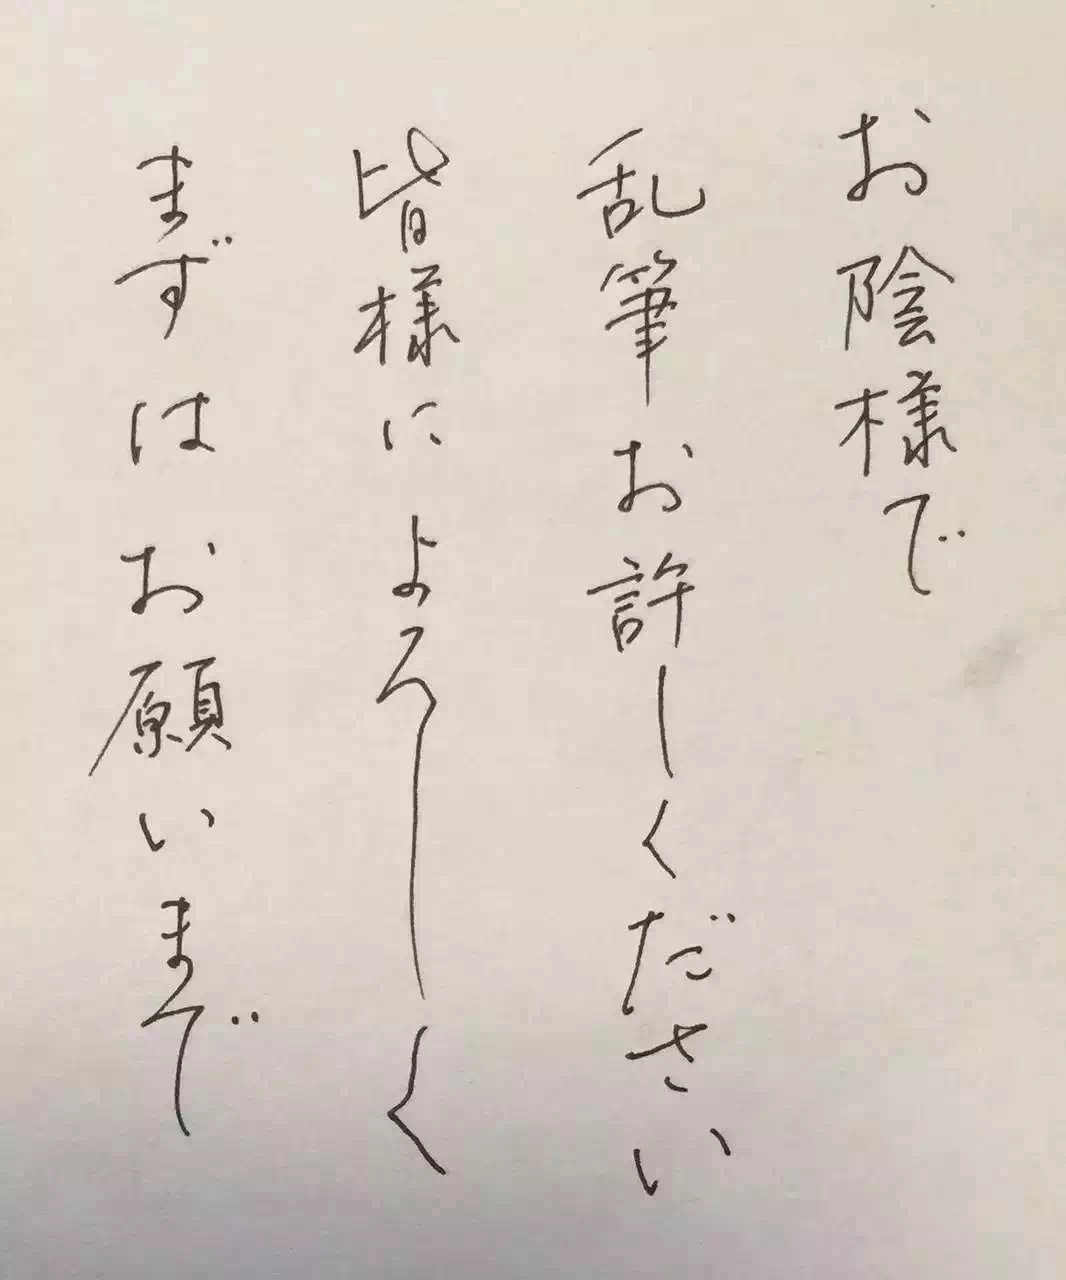 お陰様で
乱筆お許しください
皆様によろしく
まずはお願いまで